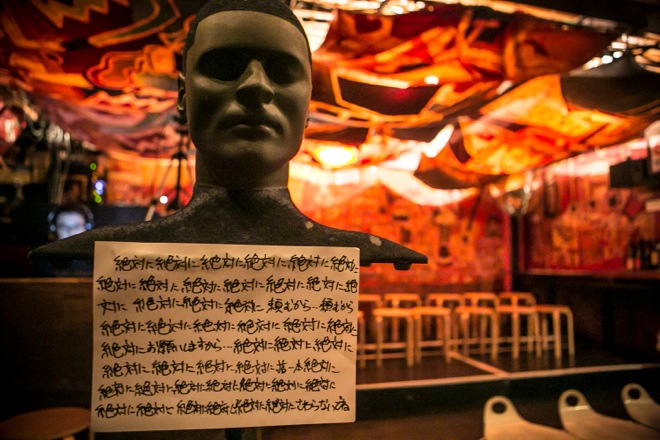 絶対に絶対に絶対に絶対に絶対に絶対に
絶対に絶対に絶対に絶対に絶対に絶対に絶
対に 絶対に絶対に絶対に 頼むから…頼むから
絶対に絶対に絶対に絶対に絶対に絶対に
絶対にお願いしますから…絶対に絶対に絶対に
絶対に絶対に絶対に絶対に 絶対に
絶対に絶対に絶対に絶対に絶対に絶対に
絶対に絶対に絶対に絶対に絶対に絶対にさわらない